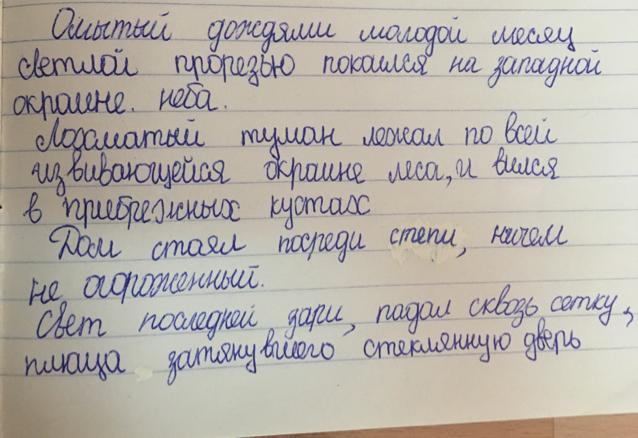 Омытый дождями молодой месяц
светлой прорезью покоился на западной
окраине. неба.
Лохматый туман лежал по всей
извивающейся окраине леса, и вился
в прибрежных кустах
Дом стоял посреди степи, ничем
не огороженный.
Свет последней зари, падал сквозь сетку,
плюща затянувшего стеклянную дверь